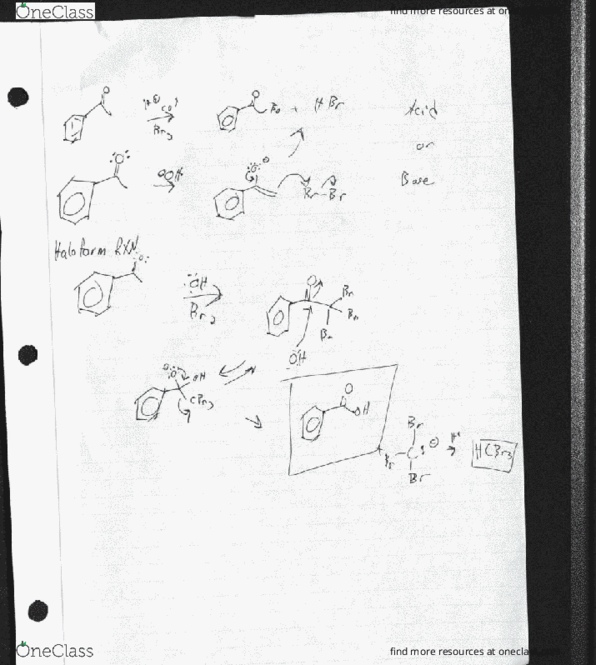 OneClass
find more resources at on
O
H⊕ cat
Br₂
O
Br + H Br
Acid
or
Base
O
OH
O
Br-Br
Haloform RXN
O
:OH
Br₂
O
Br
Br
Br
OH
O
OH
CBr₃
O
OH
Br
Br
C:⊖
Br
H⁺
HCBr₃
OneClass
find more resources at oneclass